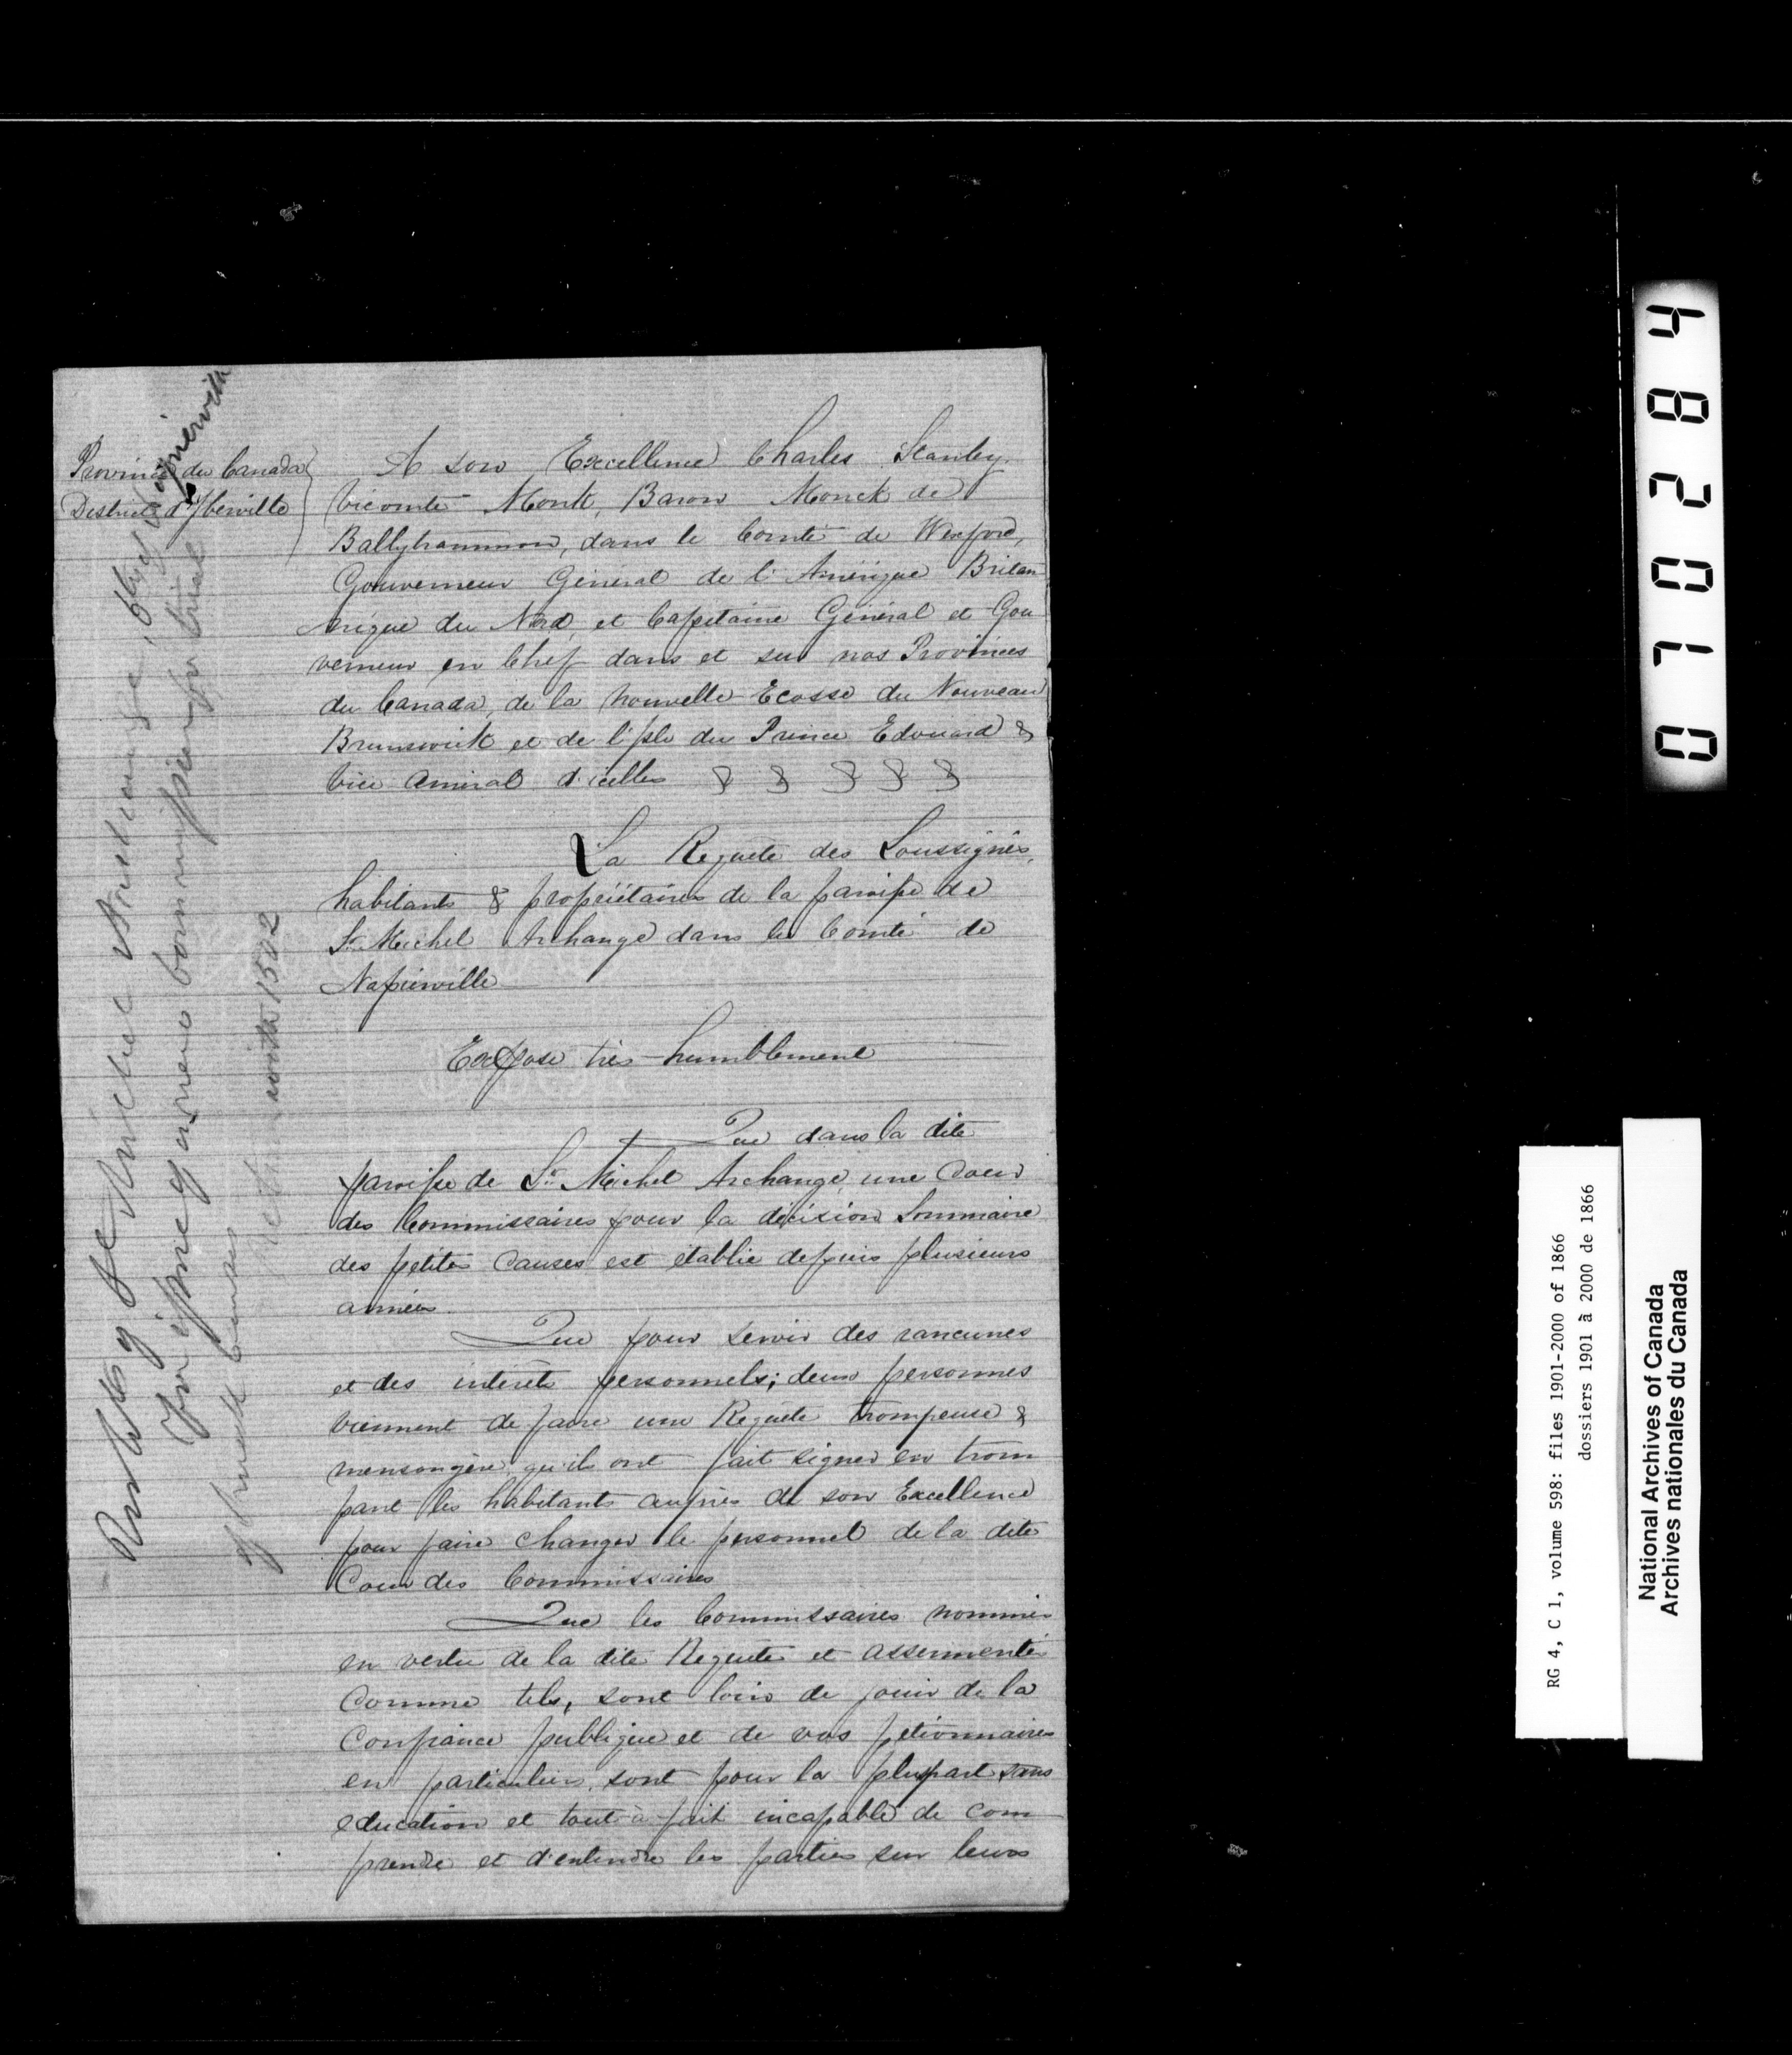 Province du Canada
District d'Iberville
A son Excellence Charles Stanley
Vicomte Monk, Baron Monck de
Ballytrammon, dans le Comté de Wexford,
Gouverneur Général de l'Amérique Britan
nique du Nord, et Capitaine Général et Gou
verneur en Chef dans et sur nos Provinces
du Canada, de la Nouvelle Ecosse du Nouveau
Brunswick et de l'Isle du Prince Edouard &
Vice Amiral d'icelles & & & & &
La Requête des Soussignés,
habitants & propriétaires de la paroisse de
St. Michel Archange dans le Comté de
Napierville
Expose très humblement
Que dans la dite
paroisse de St. Michel Archange, une Cour
des Commissaires pour la décision Sommaire
des petites Causes est établie depuis plusieurs
années.
Que pour servir des rancunes
et des intérêts personnels; deux personnes
viennent de faire une Requête trompeuse &
mensongère qu'ils ont fait signer en trom
pant les habitants auprès de son Excellence
pour faire changer le personnel de la dite
Cour des Commissaires
Que les Commissaires nommés
en vertu de la dite Requête et assermentés
Comme tels, sont loin de jouir de la
Confiance publique et de vos pétionnaires
en particulier, sont pour la pluspart sans
education et tout à fait incapable de com
prendre et d'entendre les parties sur leurs
of Napierville
with 1502
070284
RG 4, C 1, volume 598: files 1901-2000 of 1866
dossiers 1901 à 2000 de 1866
National Archives of Canada
Archives nationales du Canada